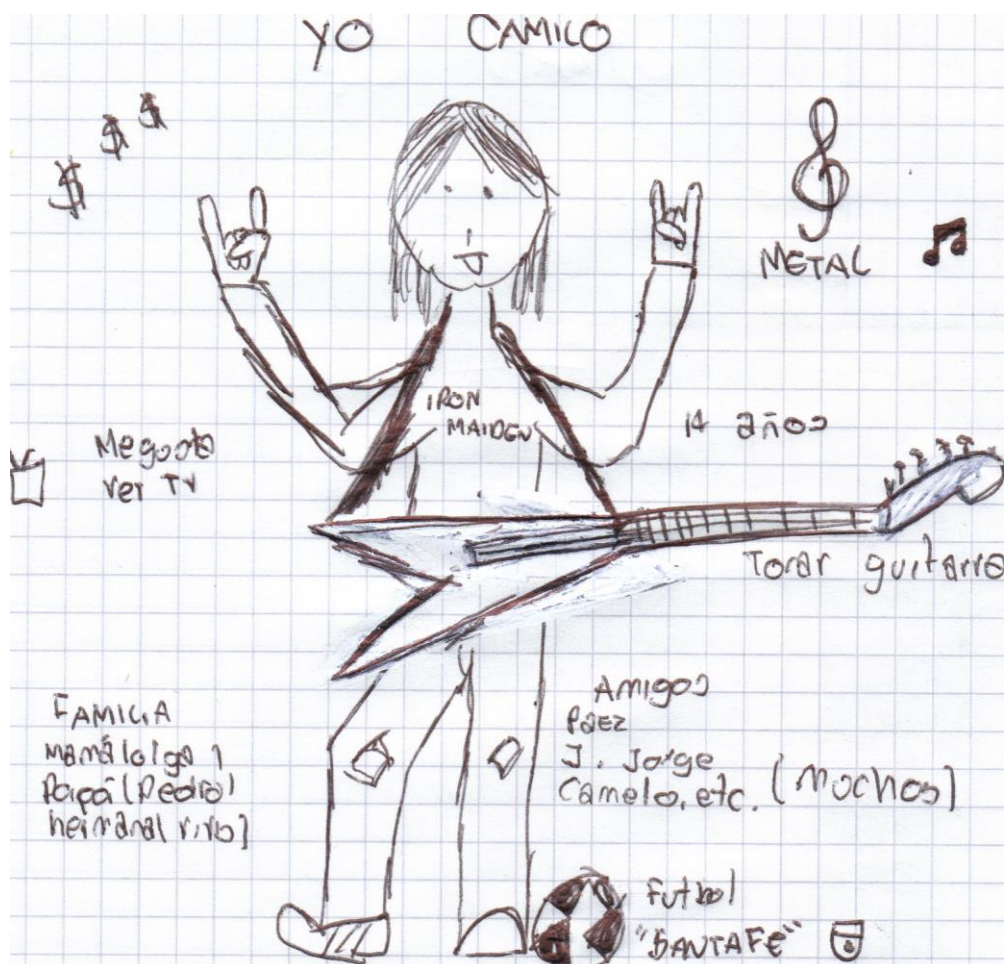 YO CAMILO
$ $ $
METAL
IRON
MAIDEN
14 años
Me gusta
ver TV
Tocar guitarra
FAMILIA
Mamá (olga)
Papá (Pedro)
hermana
Amigos
Paez
J. Jorge
Camelo, etc. (muchos)
Futbol
"SANTAFE"